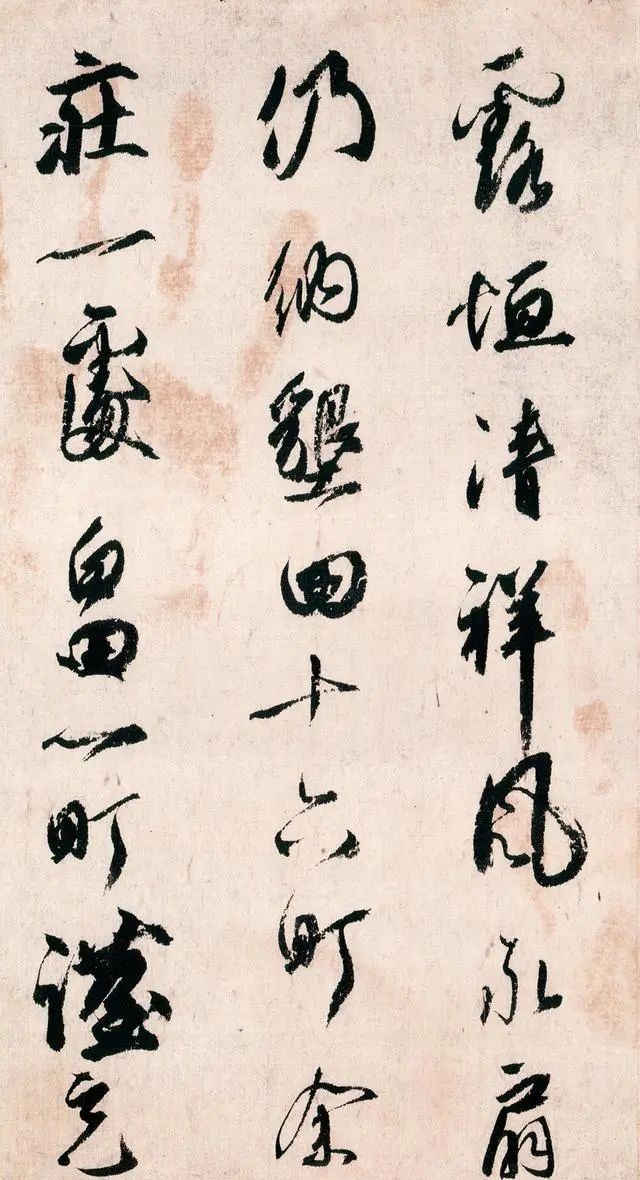 露恒清祥風永扇
仍納墾田十六町余
莊一處畠一町謹充